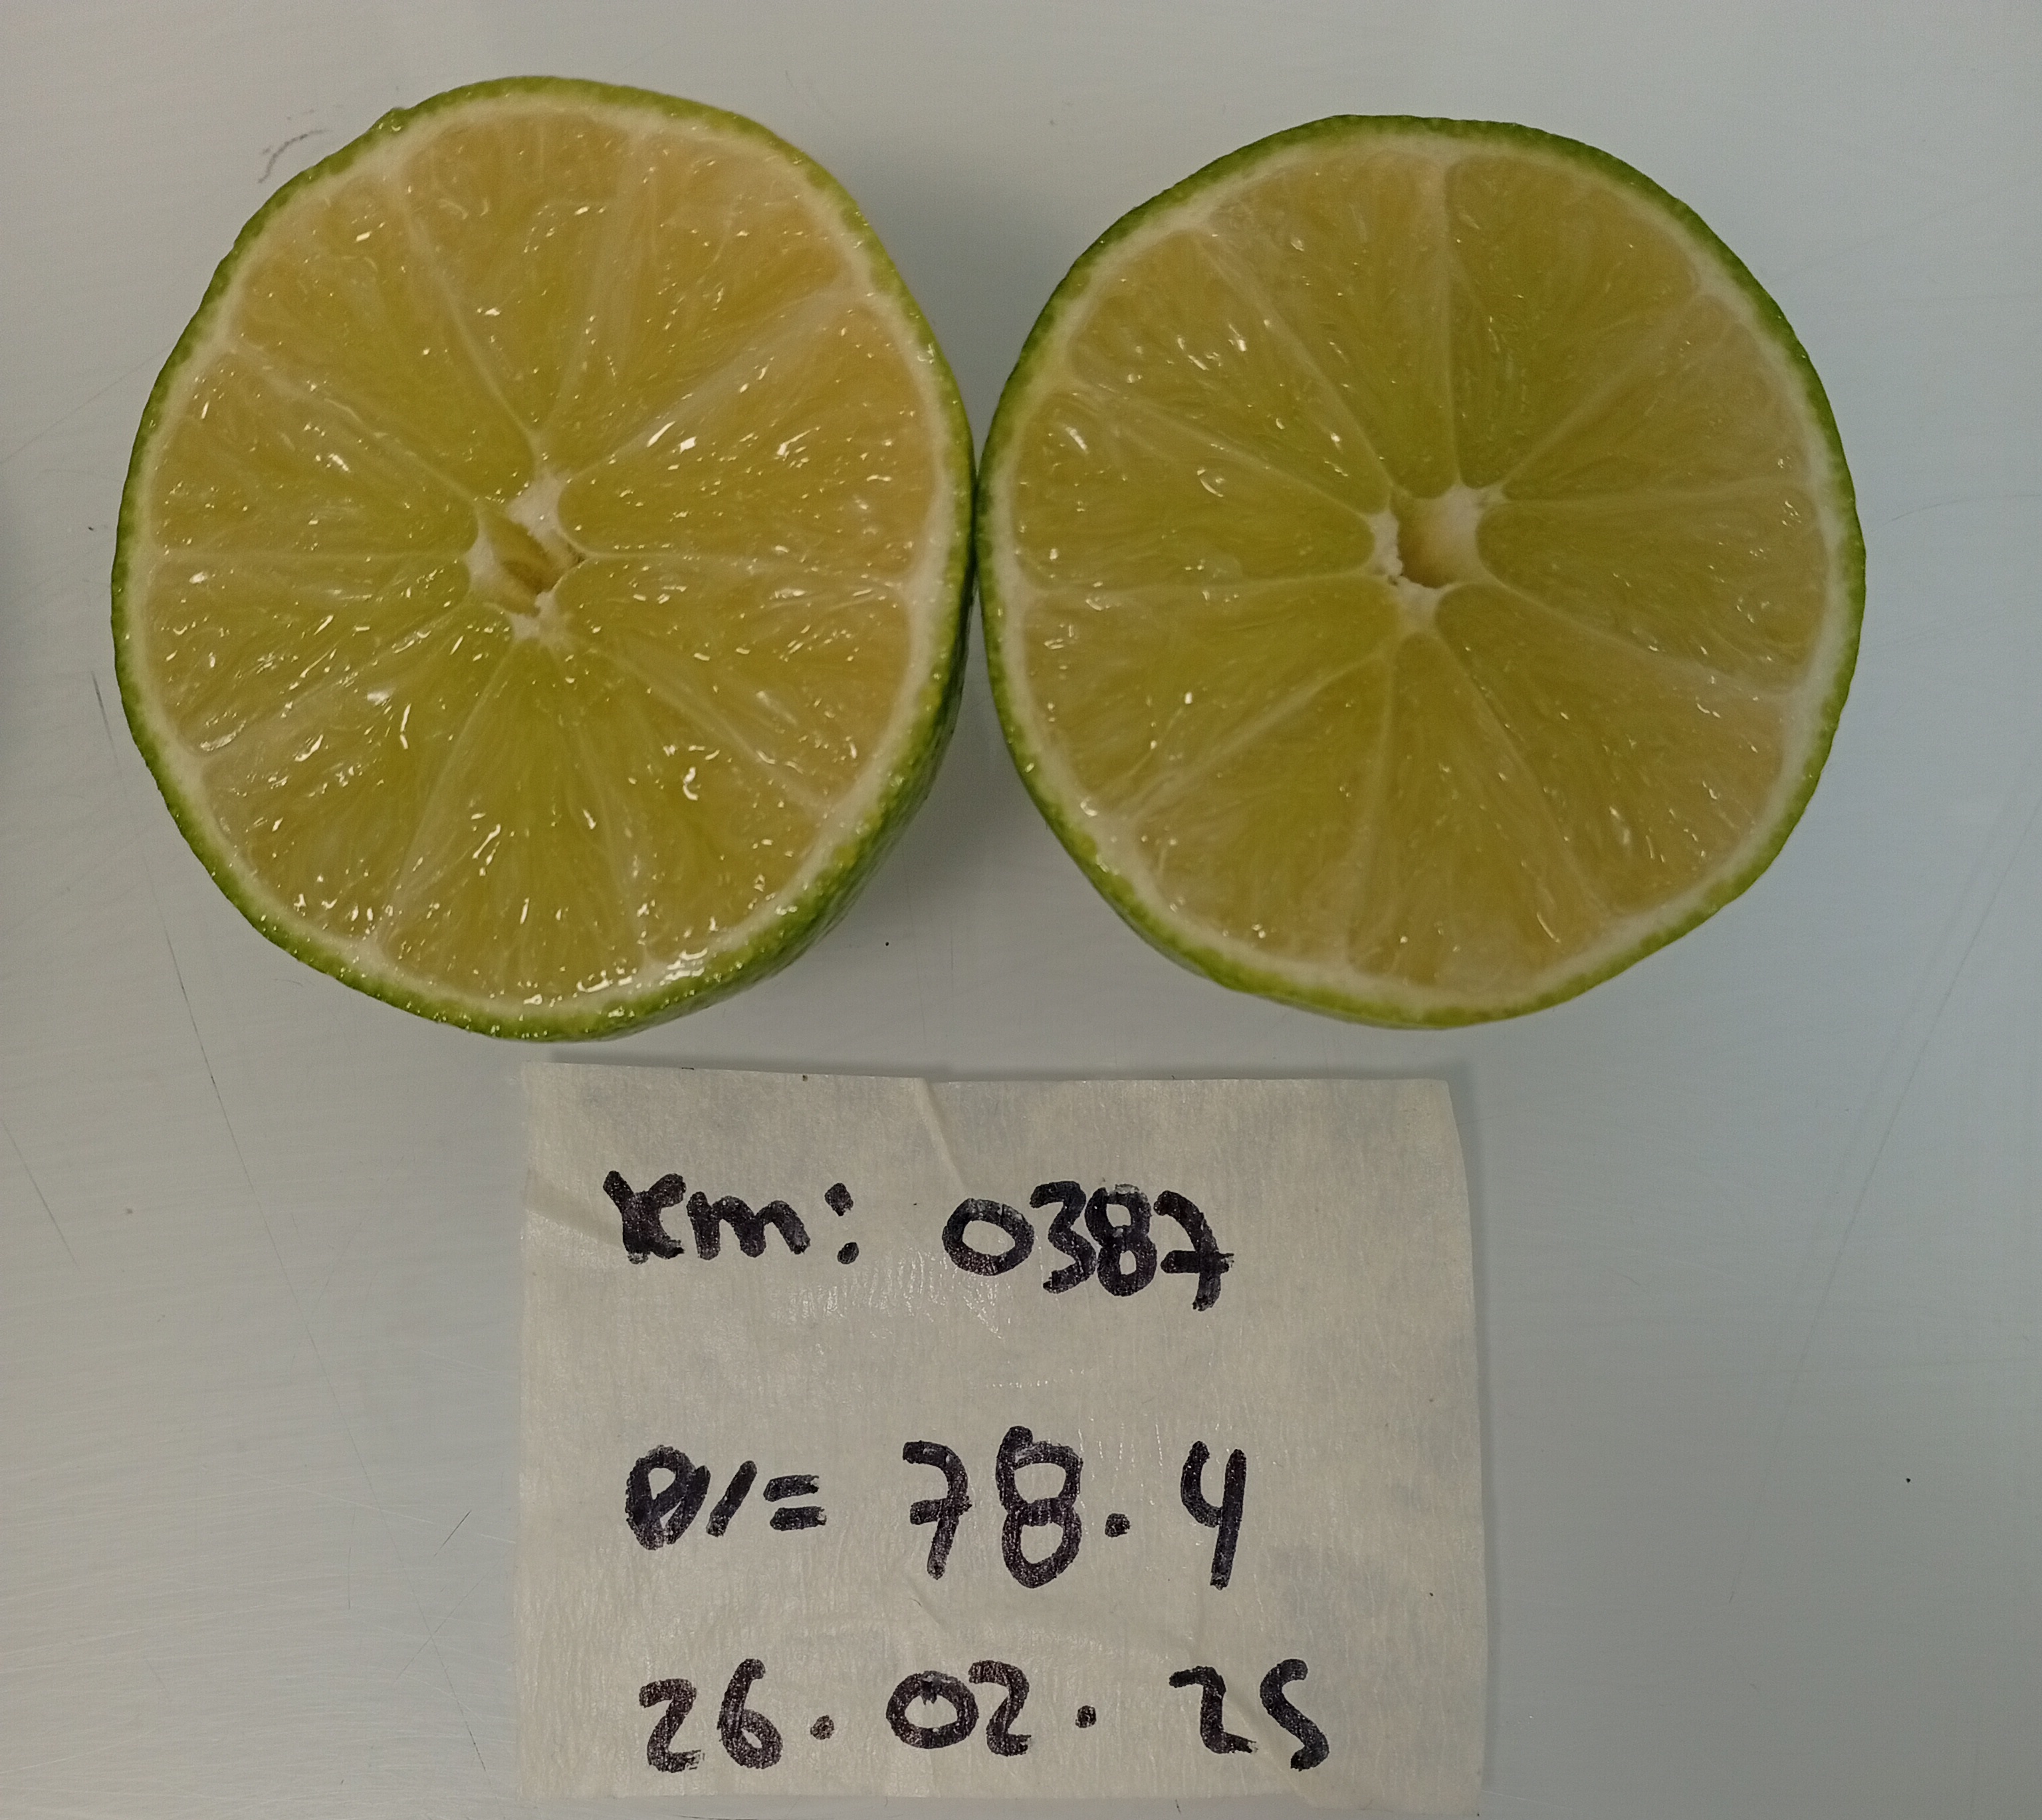 Km: 0387
= 78.4
26.02.25